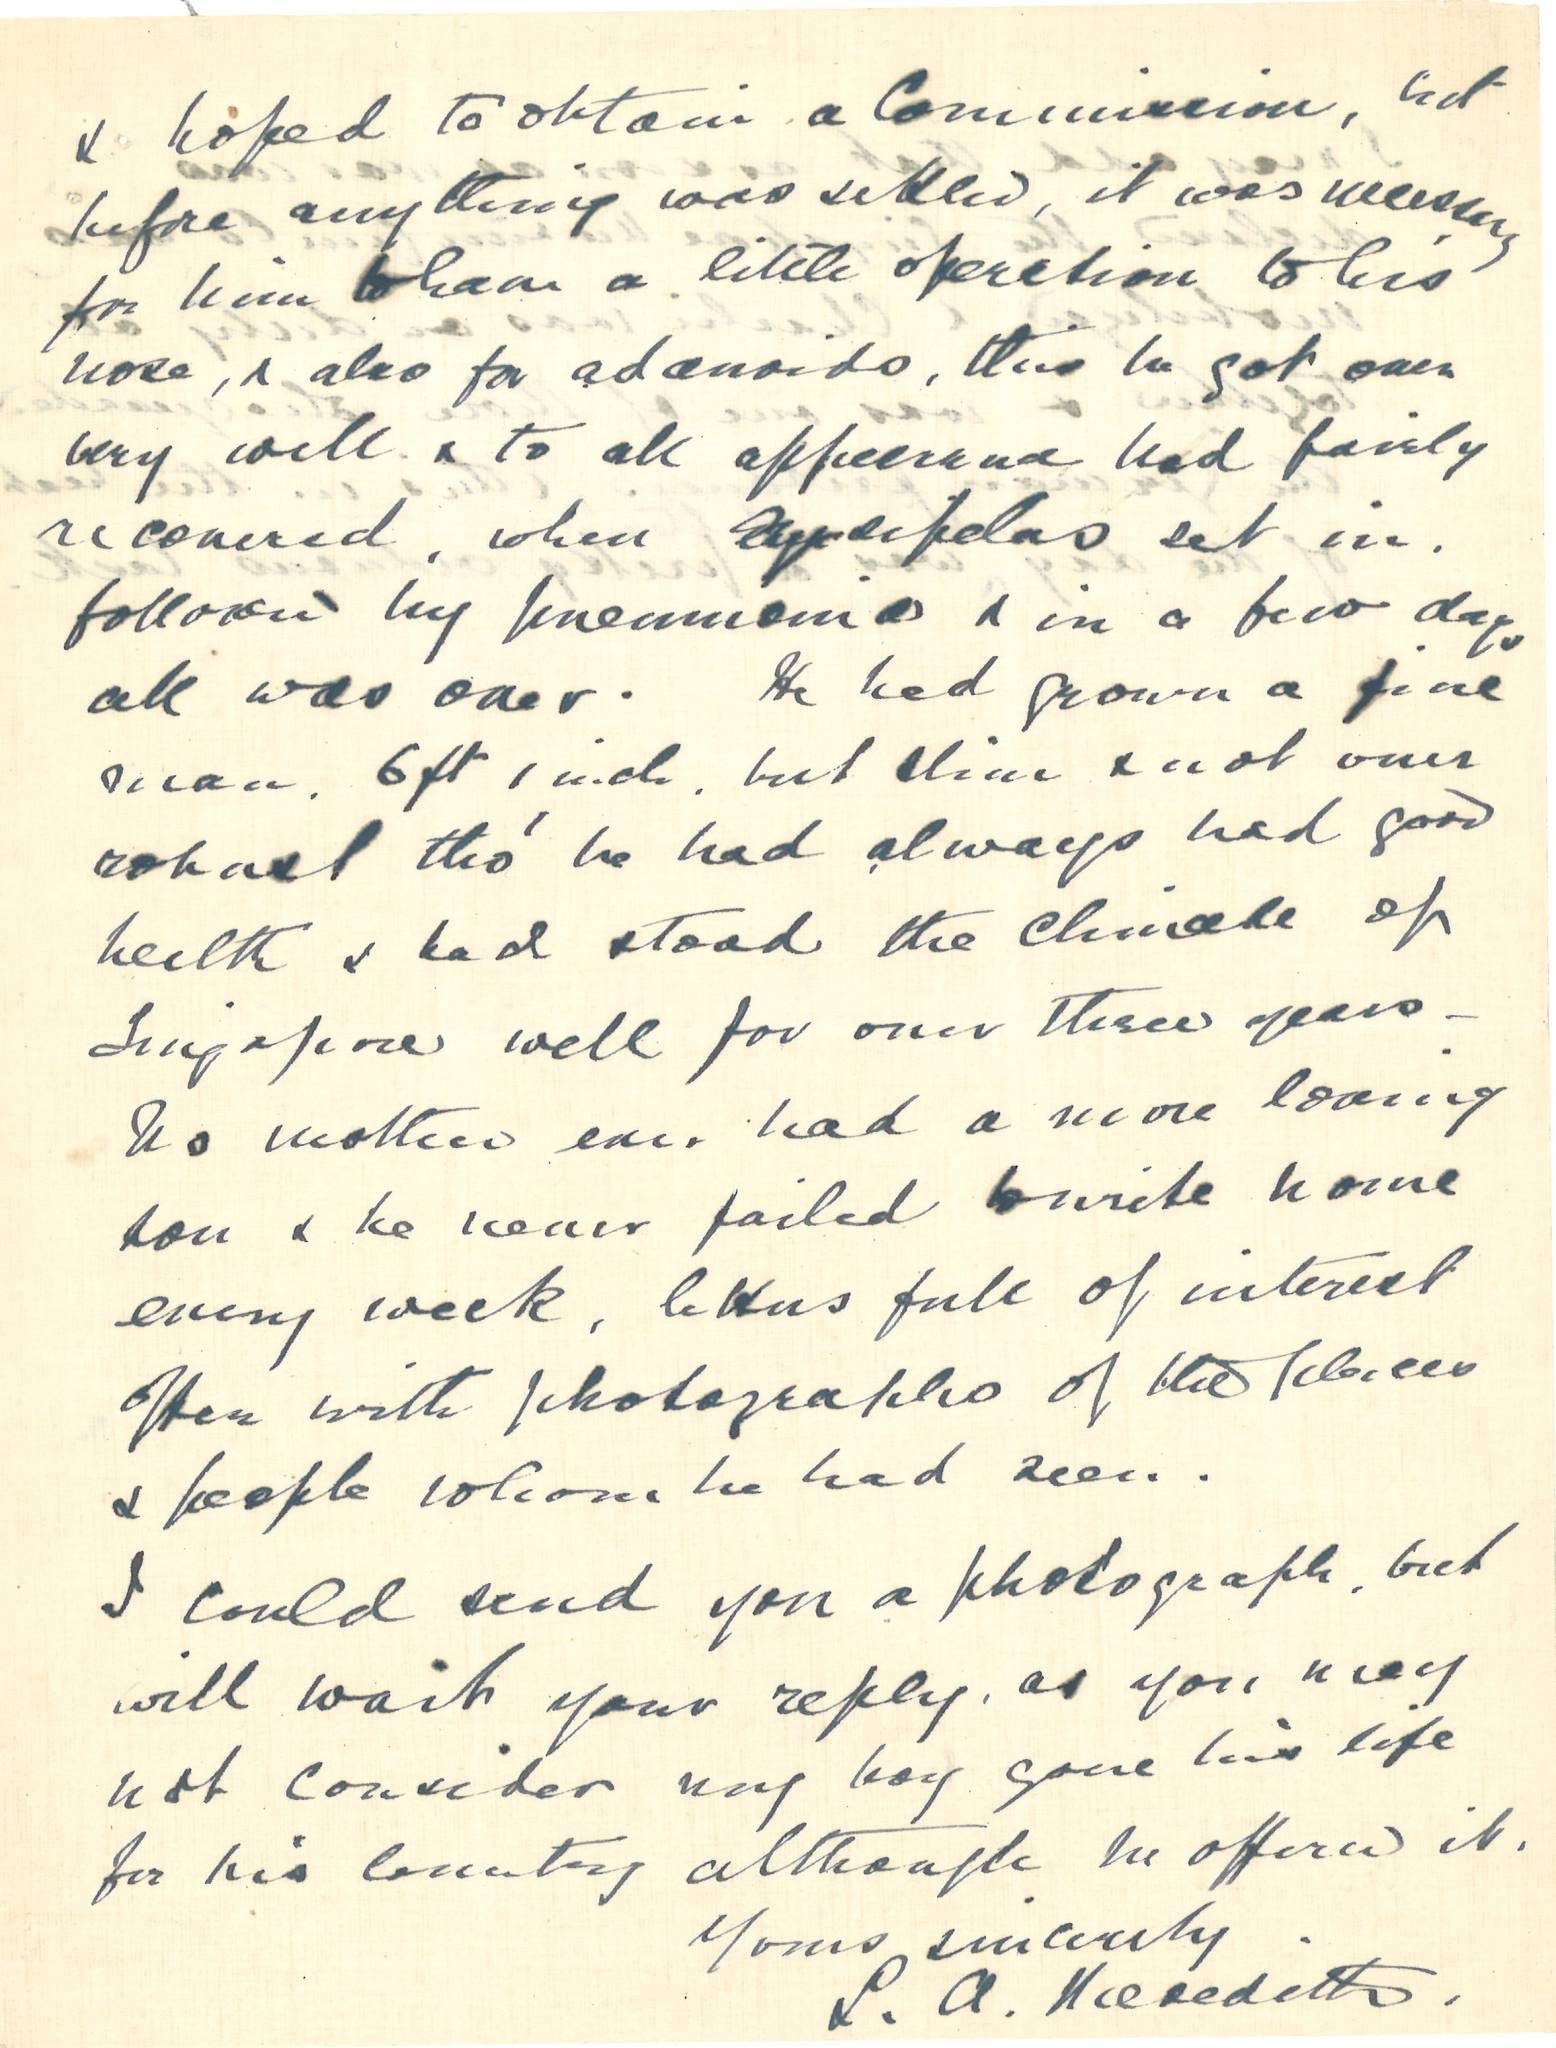 & hoped to obtain a Commission, but
before anything was settled, it was necessary
for him to have a little operation to his
nose, & also for adenoids, this he got over
very well & to all appearance had fairly
recovered, when erysipelas set in,
followed by pneumonia & in a few days
all was over. He had grown a fine
man, 6ft 1 inch, but slim & not over
robust tho' he had always had good
health & had stood the climate of
Singapore well for over three years -
No mother ever had a more loving
son & he never failed to write home
every week, letters full of interest
often with photographs of the places
& people whom he had seen.
I could send you a photograph, but
will wait your reply, as you may
not consider my boy gave his life
for his country although he offered it.
Yours sincerely.
L. A. Meredith.